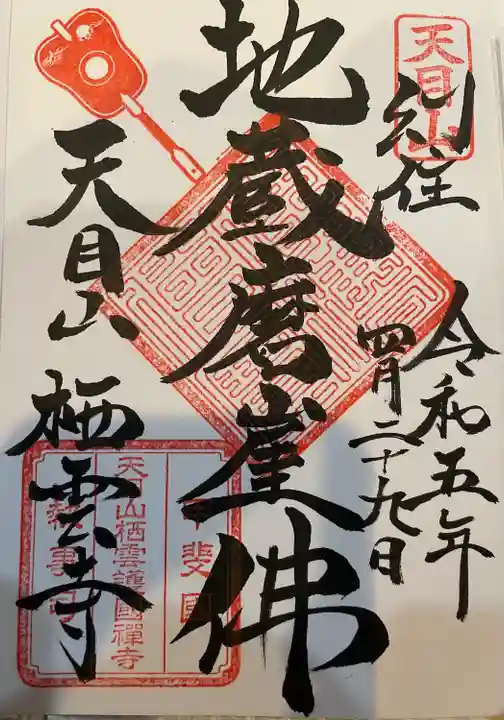 天目山
令和五年
四月二十九日
地蔵磨崖佛
天目山
栖雲寺
甲斐國
天目山栖雲護國禪寺